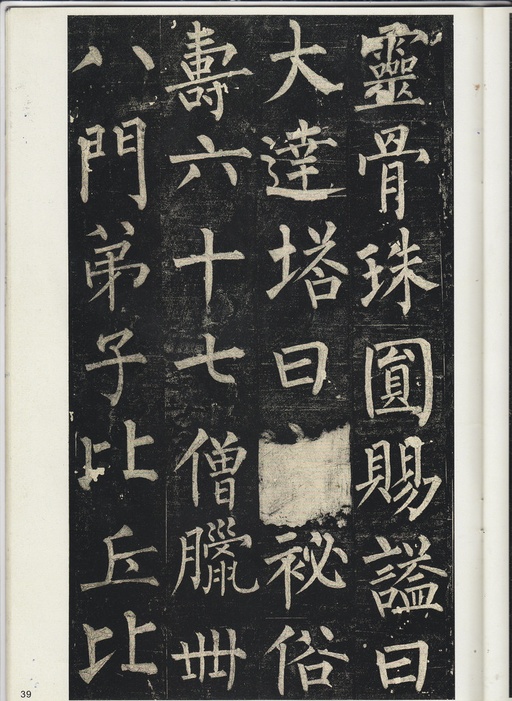 靈骨珠圓賜謚曰
大達塔曰秘俗
壽六十七僧臘卌
八門弟子比丘比
39